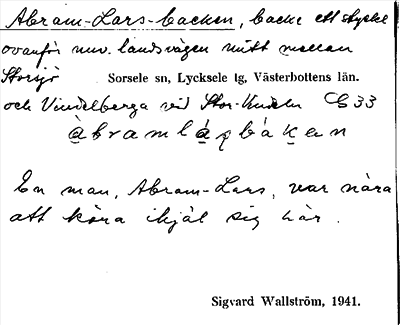 Abram-Lars-backen, backe ett stycke
ovanför nuv. landsvägen mitt mellan
Storsjö Sorsele sn, Lycksele tg, Västerbottens län.
och Vindelberga vid Stor-Vindeln C 33
En man, Abram-Lars, var nära
att köra ihjäl sig här.
Sigvard Wallström, 1941.